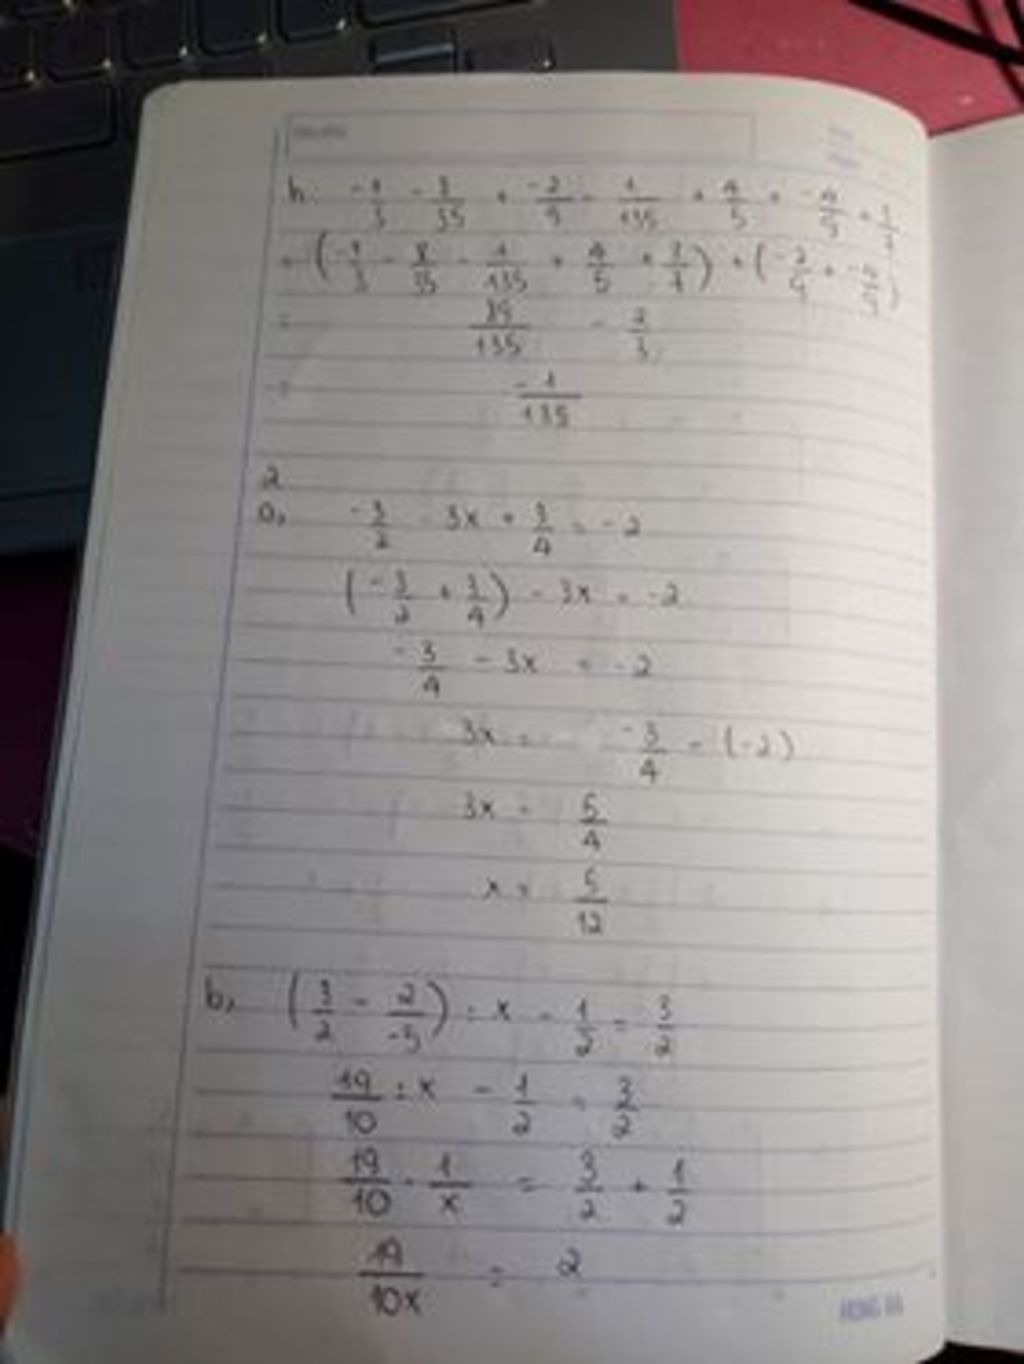 h. -1/3 - 3/35 + -2/9 - 1/135 + 4/5 + -4/9 +
= 89/135 - 2/3
= -1/135
2
a, -3/2 - 3x + 3/4 = -2
(-3/2 + 3/4) - 3x = -2
-3/4 - 3x = -2
3x = -3/4 - (-2)
3x = 5/4
x = 5/12
b, (3/2 - 2/-5) : x - 1/2 = 3/2
19/10 : x - 1/2 = 3/2
19/10 . 1/x = 3/2 + 1/2
19/10x = 2